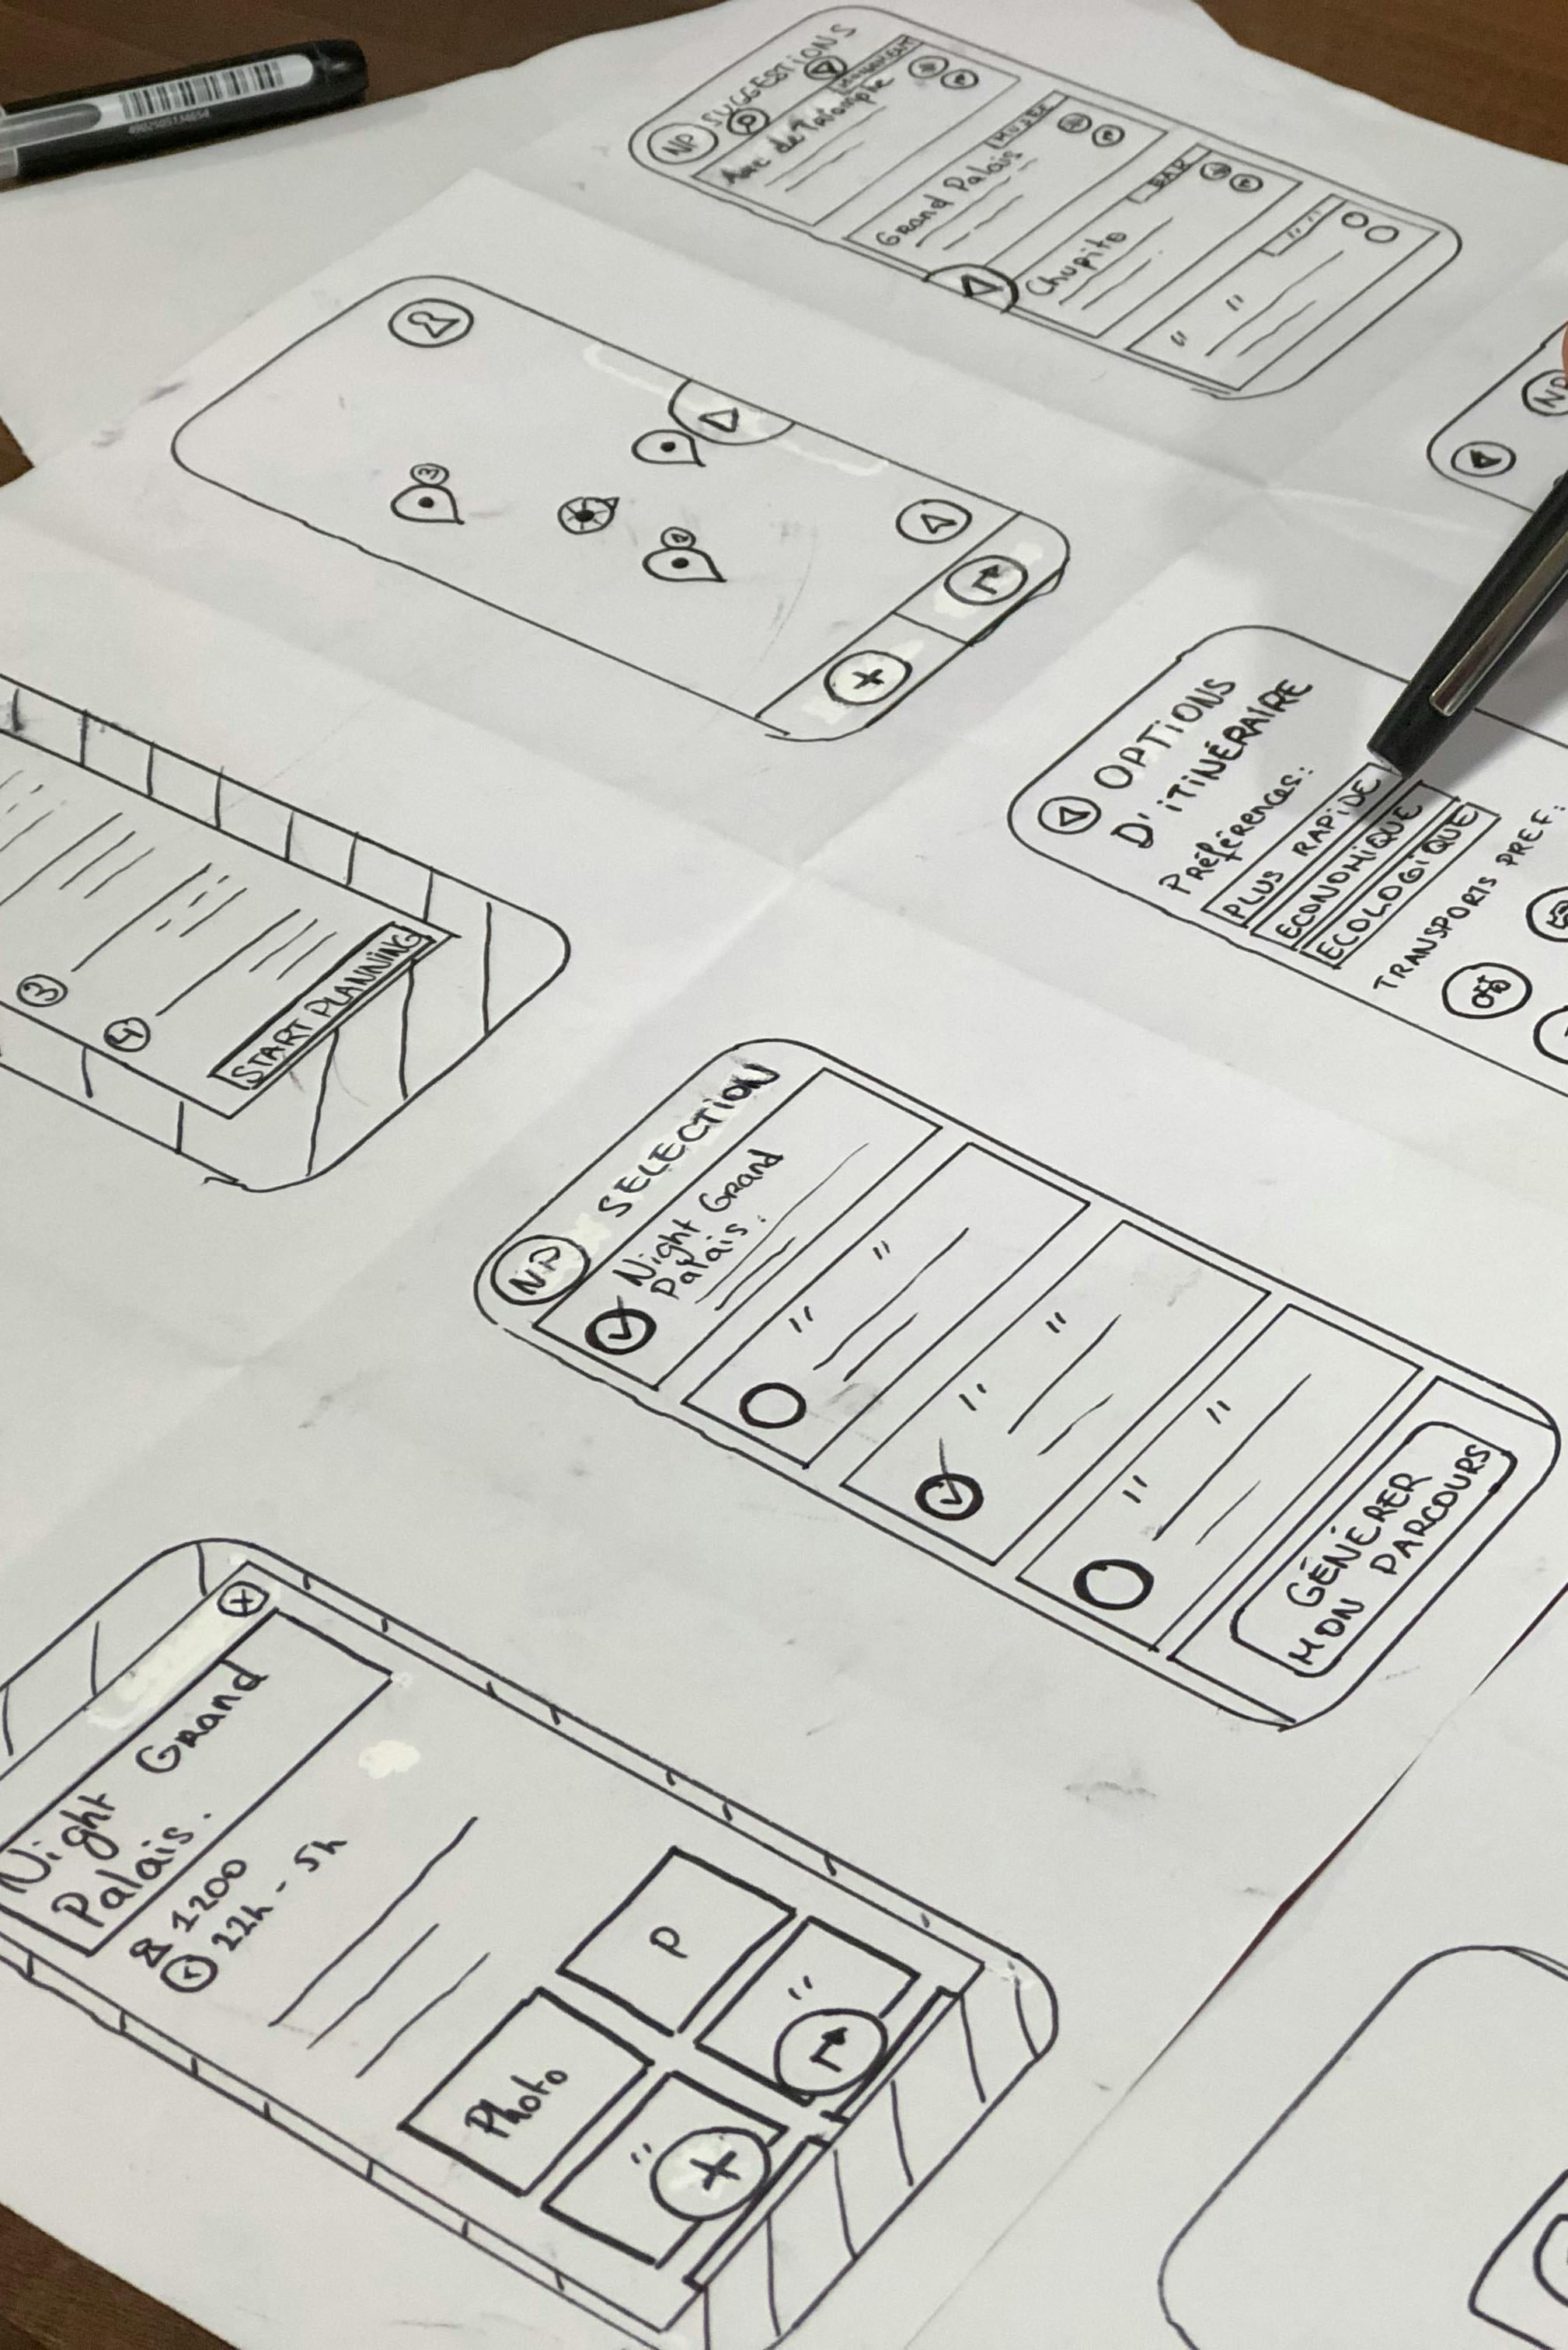 NP
SUGGESTIONS
MONUMENT
Arc de Triomphe
MUSÉE
Grand Palais
BAR
Chupito
" "
" "
NP
3
OPTiONS
D'iTiNÉRAIRE
Préférences:
PLUS RAPiDE
ECONOMiQUE
ECOLOGiQUE
TRANSPORTS PREF:
3
4
START PLANNiNG
NP
SELECTiON
Night Grand
Palais.
" "
" "
" "
GÉNÉRER
MON PARCOURS
Night Grand
Palais.
1200
22h - 5h
Photo
P
"
"